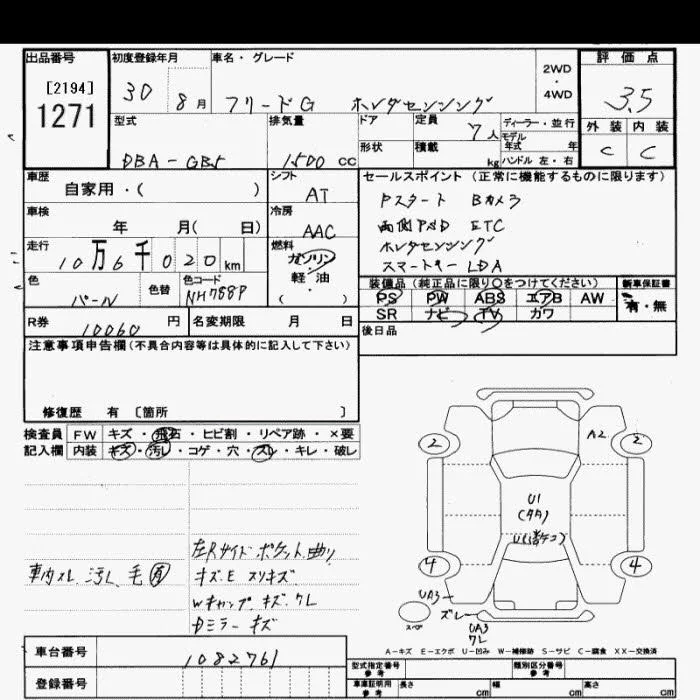 出品番号 初度登録年月 車名・グレード 2WD ・ 4WD 評価点
[2194] 1271 30 8月 フリードG ホンダセンシング 3.5
型式 排気量 ドア 定員 7人 ディーラー・並行 外装 内装
モデル年式 年
DBA-GB5 1500cc 形状 積載 kg ハンドル 左・右 C C
車歴 シフト セールスポイント (正常に機能するものに限ります)
自家用・( ) AT
Pスタート Bカメラ
車検 冷房
年 月( 日) AAC
両側PSD ETC
走行 燃料
10万6千020km ガソリン・軽・油・( )
ホンダセンシング
スマートキー LDA
色 色替 色コード
パール NH788P
装備品 (純正品に限り○をつけてください) 新車保証書
PS PW ABS エアB AW 有・無
SR ナビ TV カワ
R券 10060円 名変期限 月 日
後日品
注意事項申告欄(不具合内容等は具体的に記入して下さい)
修復歴 有 〔箇所 〕
検査員 FW キズ・飛石・ヒビ割・リペア跡・×要
記入欄 内装 キズ・汚レ・コゲ・穴・スレ・キレ・破レ
A2
2 2
U1
(タタ)
4 4
UA3
スペ
ズレ
UA3
ワレ
左Rサイドポケット曲り
車内スレ 汚レ 毛有
キズ.E スリキズ
Wキャップ キズ.ワレ
Dミラー キズ
A-キズ E-エクボ U-凹み W-補修跡 S-サビ C-腐食 XX-交換済
車台番号 1082761
型式指定番号 参考 類別区分番号 参考
登録番号
車庫証明用 参考 長さ cm 幅 cm 高さ cm